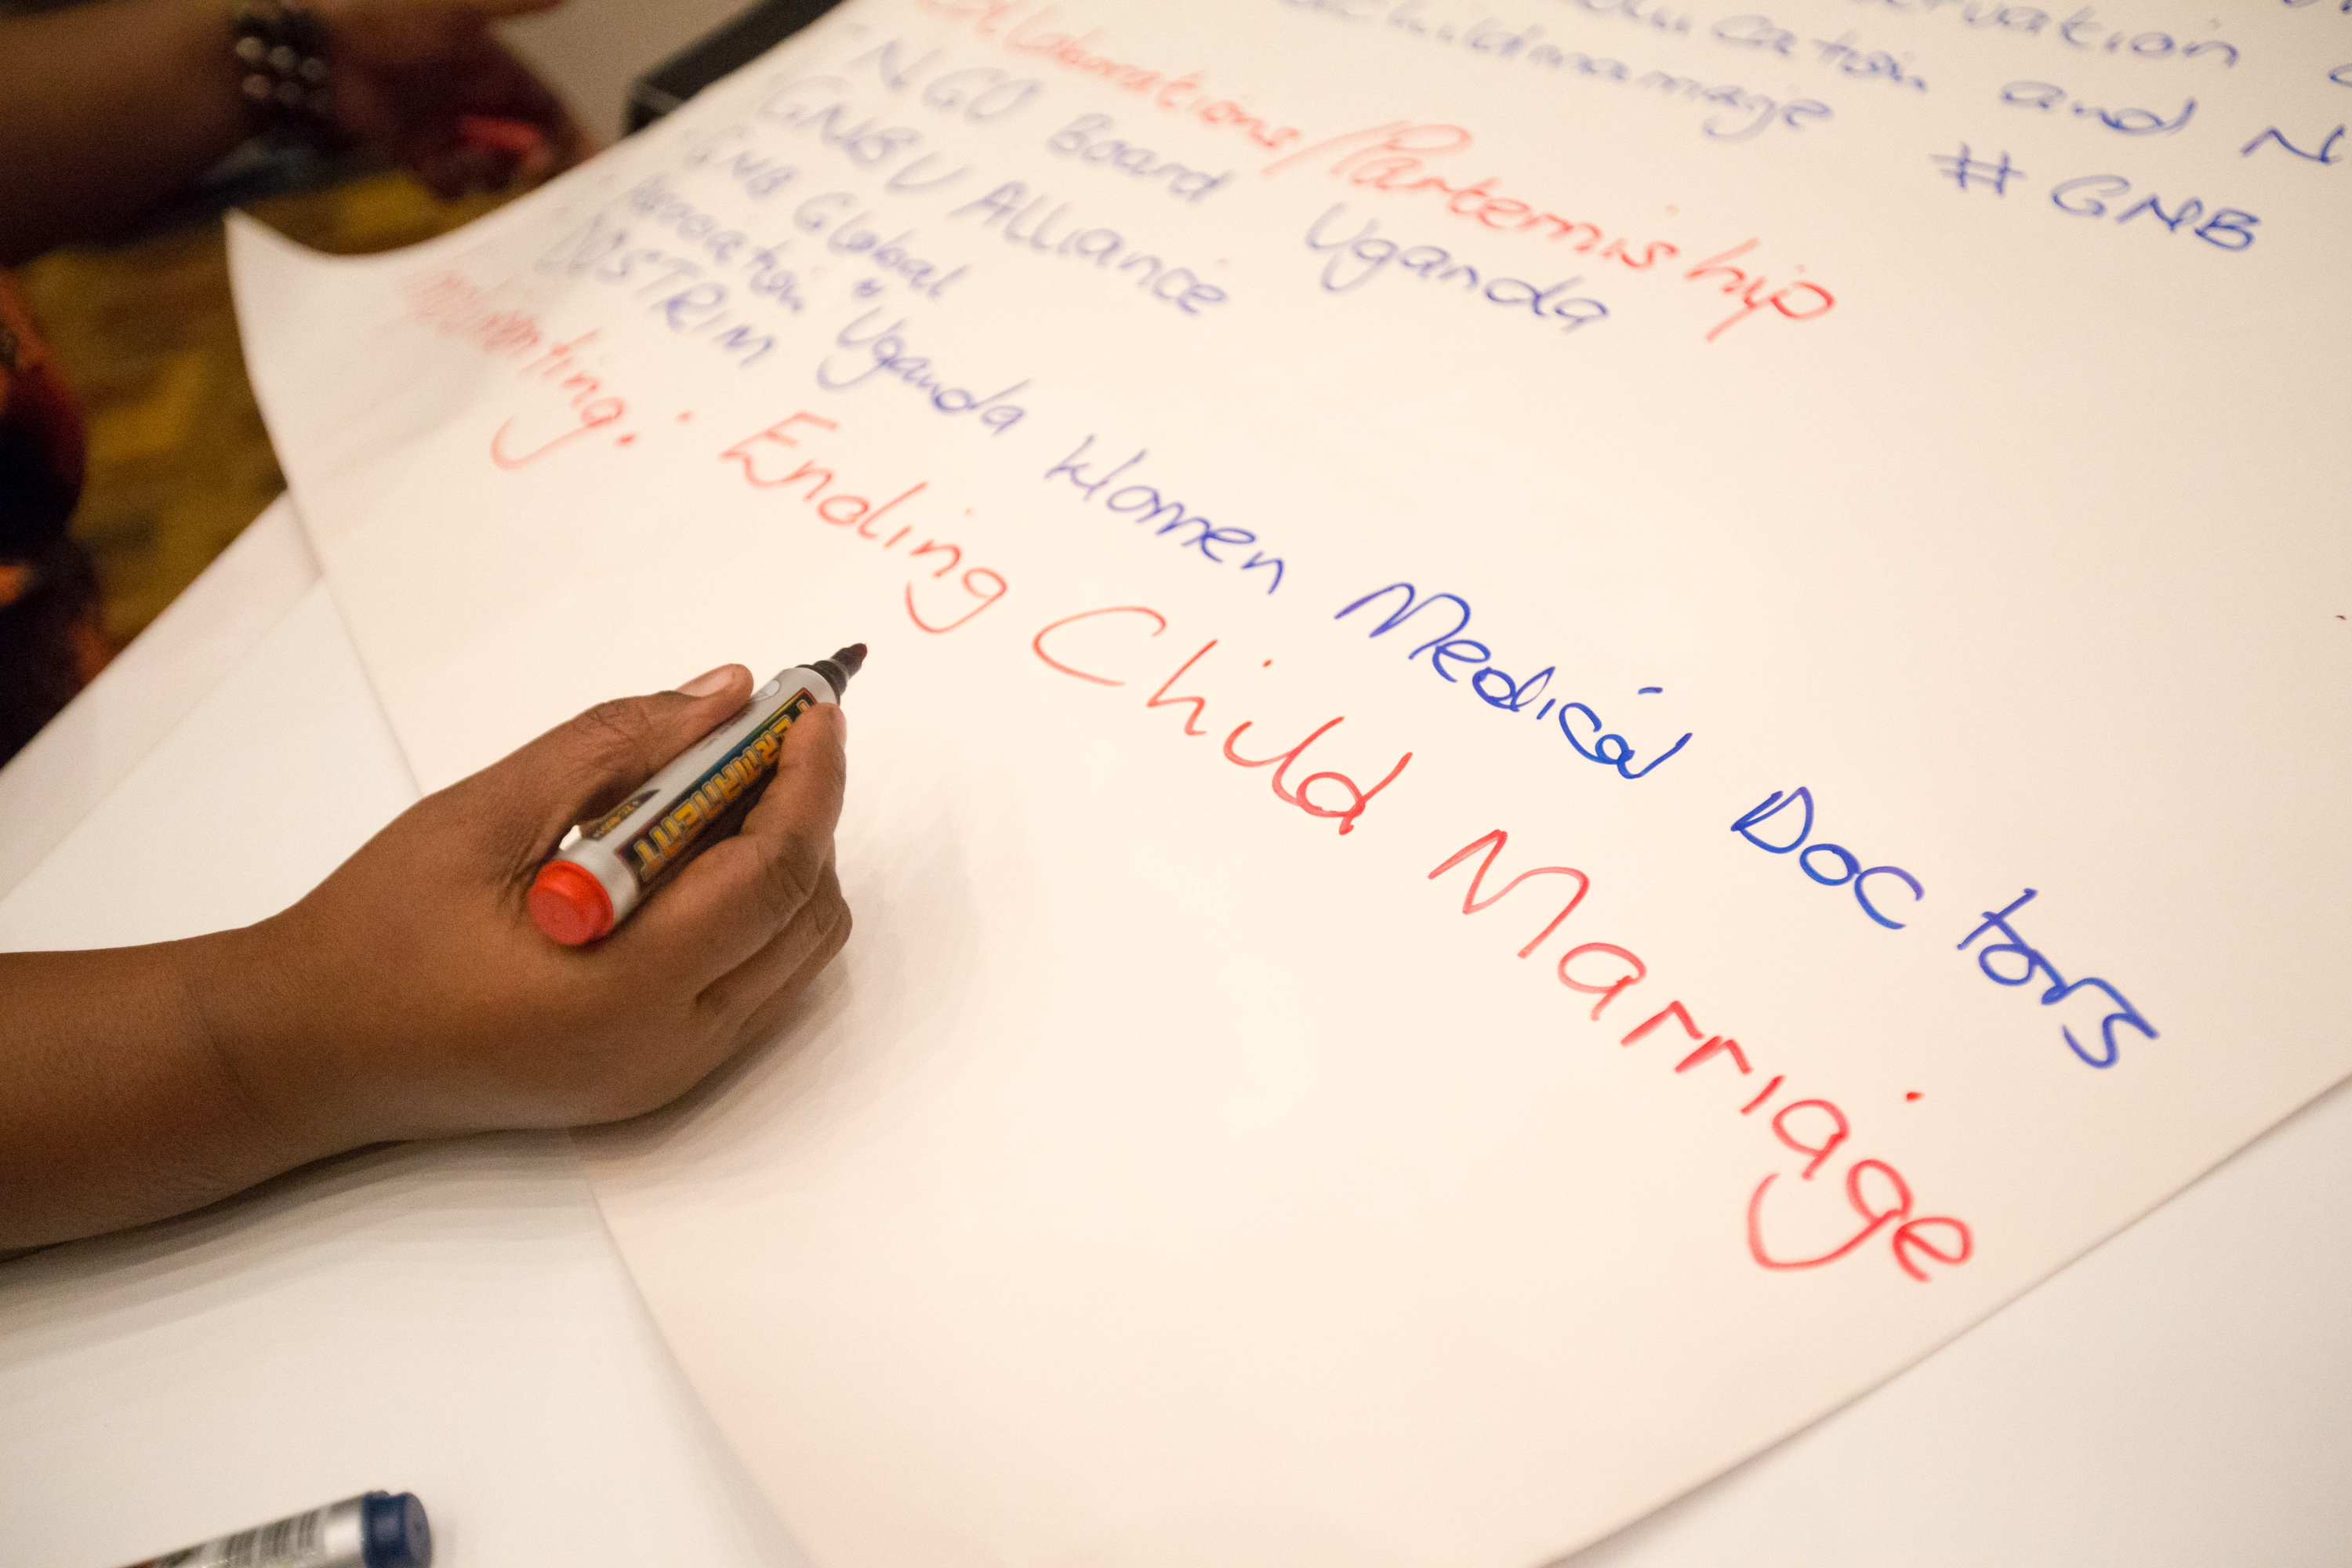 ervation
ucation and N
childmarriage #GNB
Collaborations/Parternship
" NGO Board Uganda
" GNBU Alliance
" GNB Global
" Association "Uganda Women Medical Doctors
" DOSTRIM
Ending Child Marriage
PERMANENT